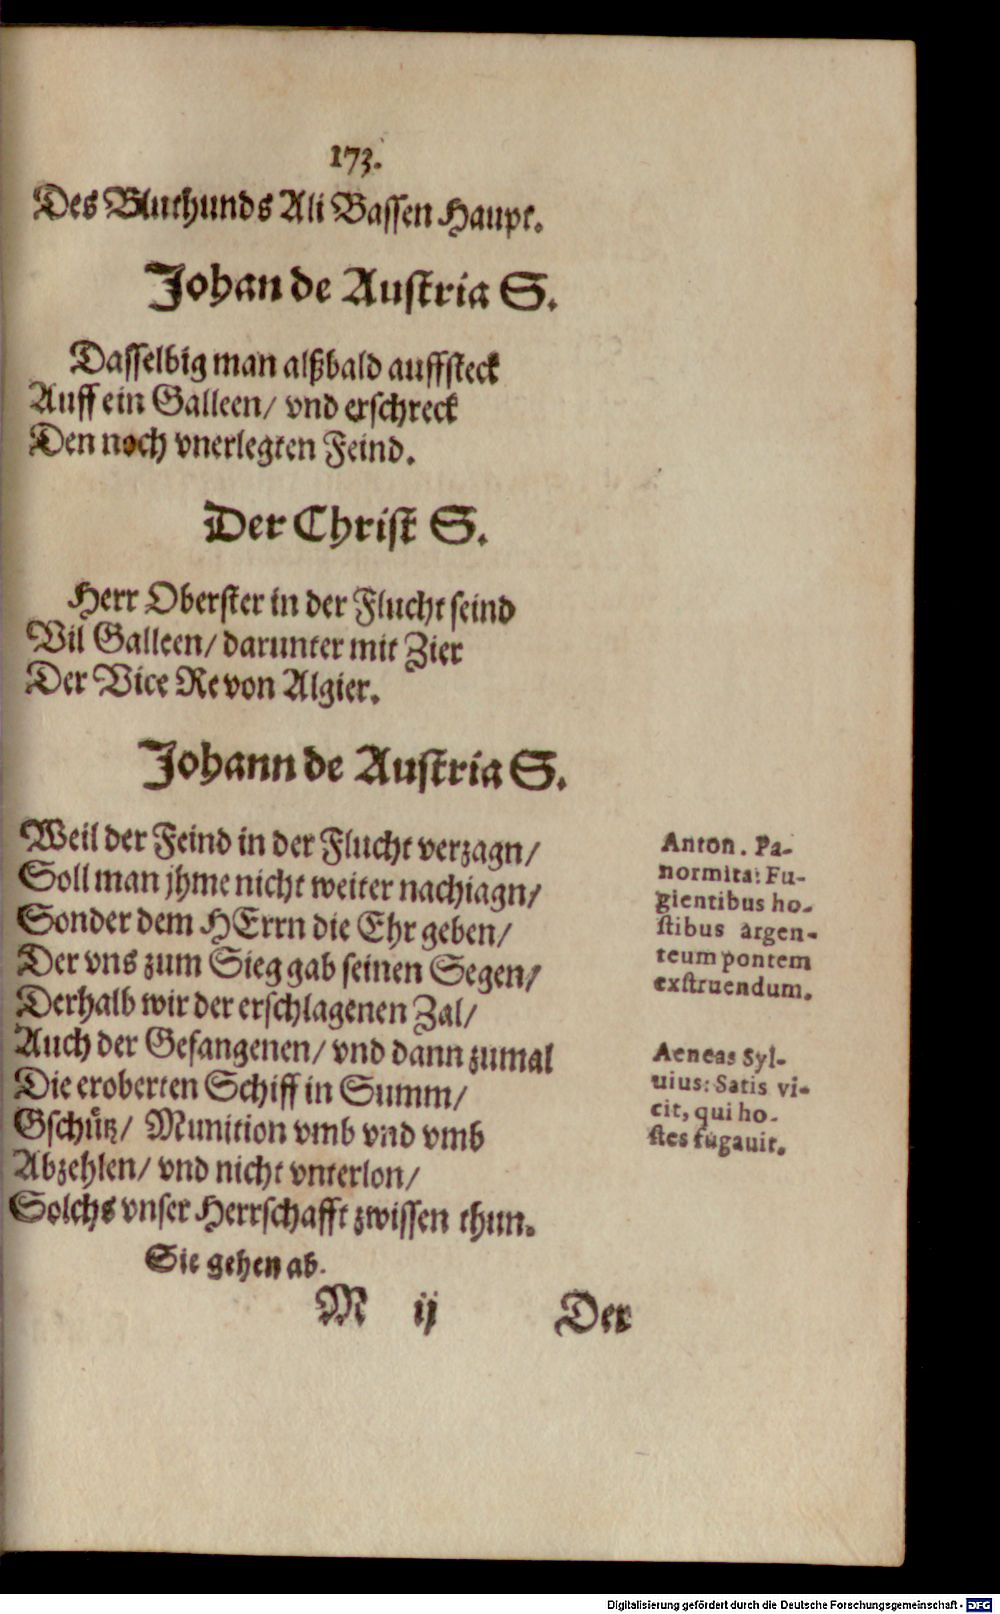 173.
Des Bluthunds Ali Bassen Haupt.
Johan de Austria S.
Dasselbig man alßbald auffsteck
Auff ein Galleen/ vnd erschreck
Den noch vnerlegten Feind.
Der Christ S.
Herr Oberster in der Flucht seind
Vil Galleen/ darunter mit Zier
Der Vice Re von Algier.
Johann de Austria S.
Weil der Feind in der Flucht verzagn/
Soll man jhme nicht weiter nachiagn/
Sonder dem HErrn die Ehr geben/
Der vns zum Sieg gab seinen Segen/
Derhalb wir der erschlagenen Zal/
Auch der Gefangenen/ vnd dann zumal
Die eroberten Schiff in Summ/
Gschütz/ Munition vmb vnd vmb
Abzehlen/ vnd nicht vnterlon/
Solchs vnser Herrschafft zwissen thun.
Sie gehen ab.
Anton. Pa-
normita: Fu-
gientibus ho-
stibus argen-
teum pontem
exstruendum.
Aeneas Syl-
uius: Satis vi-
cit, qui ho-
stes fugauit.
M ij Der
Digitalisierung gefördert durch die Deutsche Forschungsgemeinschaft - DFG